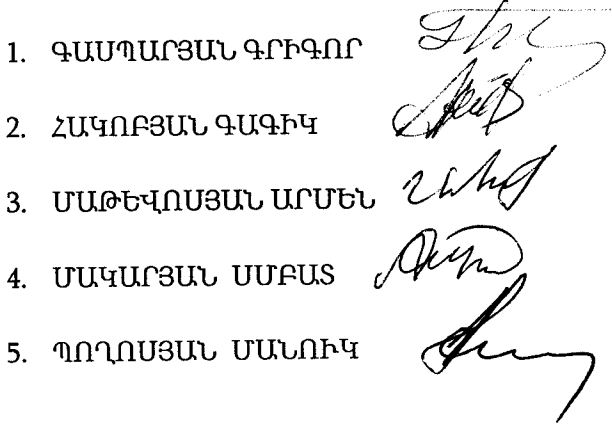 1. ԳԱՍՊԱՐՅԱՆ ԳՐԻԳՈՐ
2. ՀԱԿՈԲՅԱՆ ԳԱԳԻԿ
3. ՄԱԹԵՎՈՍՅԱՆ ԱՐՄԵՆ
4. ՄԱԿԱՐՅԱՆ ՍՄԲԱՏ
5. ՊՈՂՈՍՅԱՆ ՄԱՆՈՒԿ